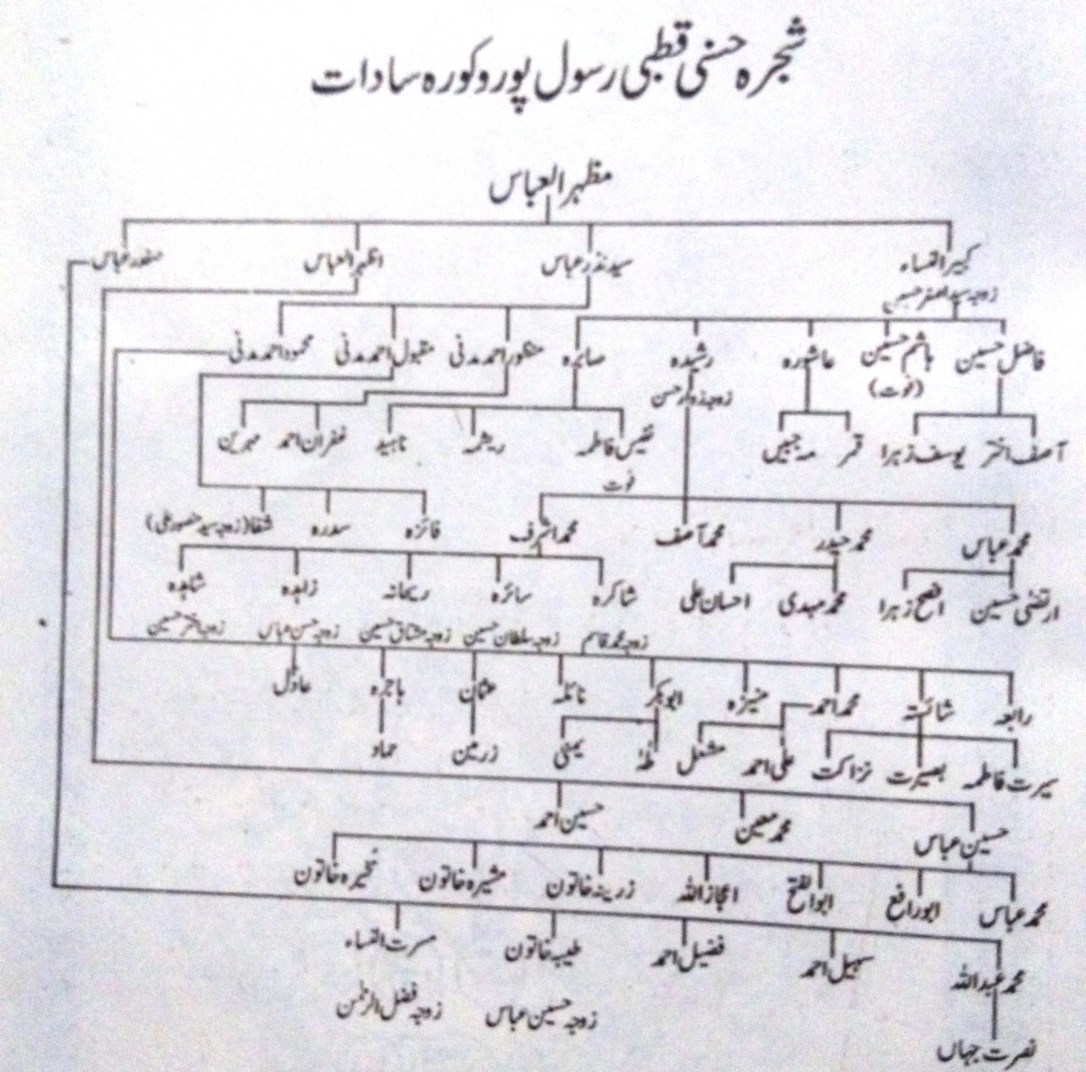 شجرہ حسنی قطبی رسول پور و کورہ سادات
مظہر العباس
کبیر النساء سید نذر عباس اظہر العباس صفدر عباس
زوجہ سید اصغر حسین
فاضل حسین ہاشم حسین عاشورہ رشیدہ صابرہ منظور احمد مدنی مقبول احمد مدنی محمود احمد مدنی
(فوت) زوجہ ذوالفقار حسن
آصف اختر یوسف زہرا قمر مہ جبیں نفیس فاطمہ ریشمہ ناہید غفران احمد مہرین
فوت
محمد عباس محمد حیدر محمد آصف محمد اشرف فائزہ سدرہ شفا (زوجہ سید منصور علی)
ارتضیٰ حسین افصح زہرا محمد مہدی احسان علی شاکرہ سائرہ ریحانہ زاہدہ شاہدہ
زوجہ محمد قاسم زوجہ سلطان حسین زوجہ مشتاق حسین زوجہ حسن عباس زوجہ اختر حسین
رابعہ شائستہ محمد احمد منیزہ ابوبکر نائلہ عثمان ہاجرہ عادل
سیرت فاطمہ بصیرت نزاکت علی احمد مشعل طہٰ یمنیٰ زرمین حماد
حسین عباس محمد معین حسین احمد
محمد عباس ابو رافع ابو الفتح اعجاز اللہ زرینہ خاتون مشیرہ خاتون نخیرہ خاتون
محمد عبداللہ سہیل احمد فضیل احمد طیبہ خاتون مسرت النساء
زوجہ حسین عباس زوجہ فضل الرحمٰن
نصرت جہاں